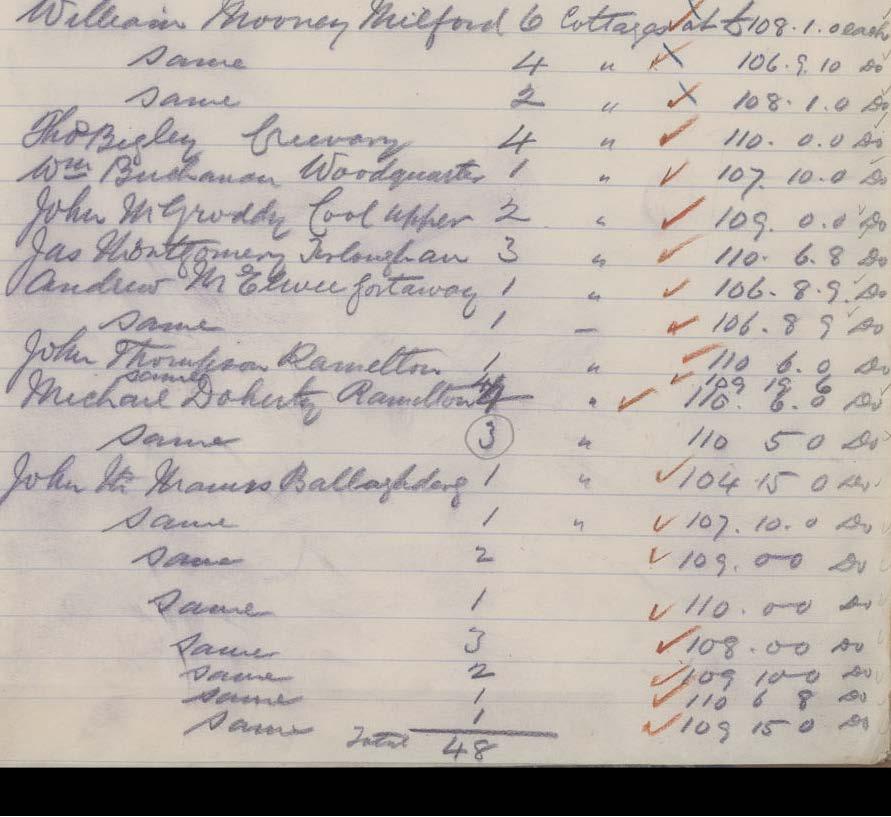 William Mooney Milford 6 Cottages at £108.1.0 each
same 4 " 106.9.10 Do
same 2 " 108.1.0 Do
Thos Bigley Creevary 4 " 110.0.0 Do
Wm Buchanan Woodquarter 1 " 107.10.0 Do
John McGroddy Cool Upper 2 " 109.0.0 Do
Jas Montgomery 3 " 110.6.8 Do
Andrew McElwee Gortaway 1 " 106.8.9 Do
same 1 – 106.8 9 Do
John Thompson Ramelton 1 " 110 6.0 Do
same 109 19 6
Michael Doherty Ramelton 4 " 110. 6.0 Do
same 3 " 110 5 0 Do
John 1 " 104 15 0 Do
same 1 " 107.10.0 Do
same 2 109.00 Do
same 1 110.00 Do
same 3 108.00 Do
same 2 109 100 Do
same 1 110 6 8 Do
same 1 109 15 0 Do
Total 48